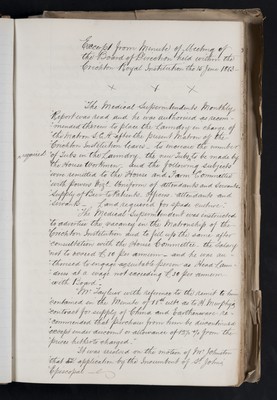 Excerpt from Minute of Meeting of
the Board of Direction held within the
Crichton Royal Institution the 15 June 1883.
x x x
The Medical Superintendents Monthly
Report was read and he was authorised as recom-
mended therein to place the Laundry in charge of
the Matron S. C. H. after the present Matron of the
Crichton Institution leaves, to increase the number
required of Tubs in the Laundry, the new Tubs to be made by
the House Workmen, and the following subjects
were remitted to the House and Farm Committee
with powers Viz. Uniform of attendants and servants,
Supply of Beer to Patients, Officers, attendants and
Servants, Land required for spade culture.
The Medical Superintendent was instructed
to advertise the vacancy in the Matronship of the
Crichton Institution and to fill up the same after
consultation with the House Committee, the Salary
not to exceed £ per annum, and he was au-
thorised to engage another person as Head Laun-
dress at a wage not exceeding £30 per annum
with Board.
Mr. with reference to the remit to him
contained in the Minute of 11th as to
contract for supply of China and Earthenware re-
commended that purchases from him be discontinued
except under discount or allowance of % from the
prices hitherto charged.
It was resolved on the motion of Mr Johnston
that application by the Incumbent of St John's
Episcopal